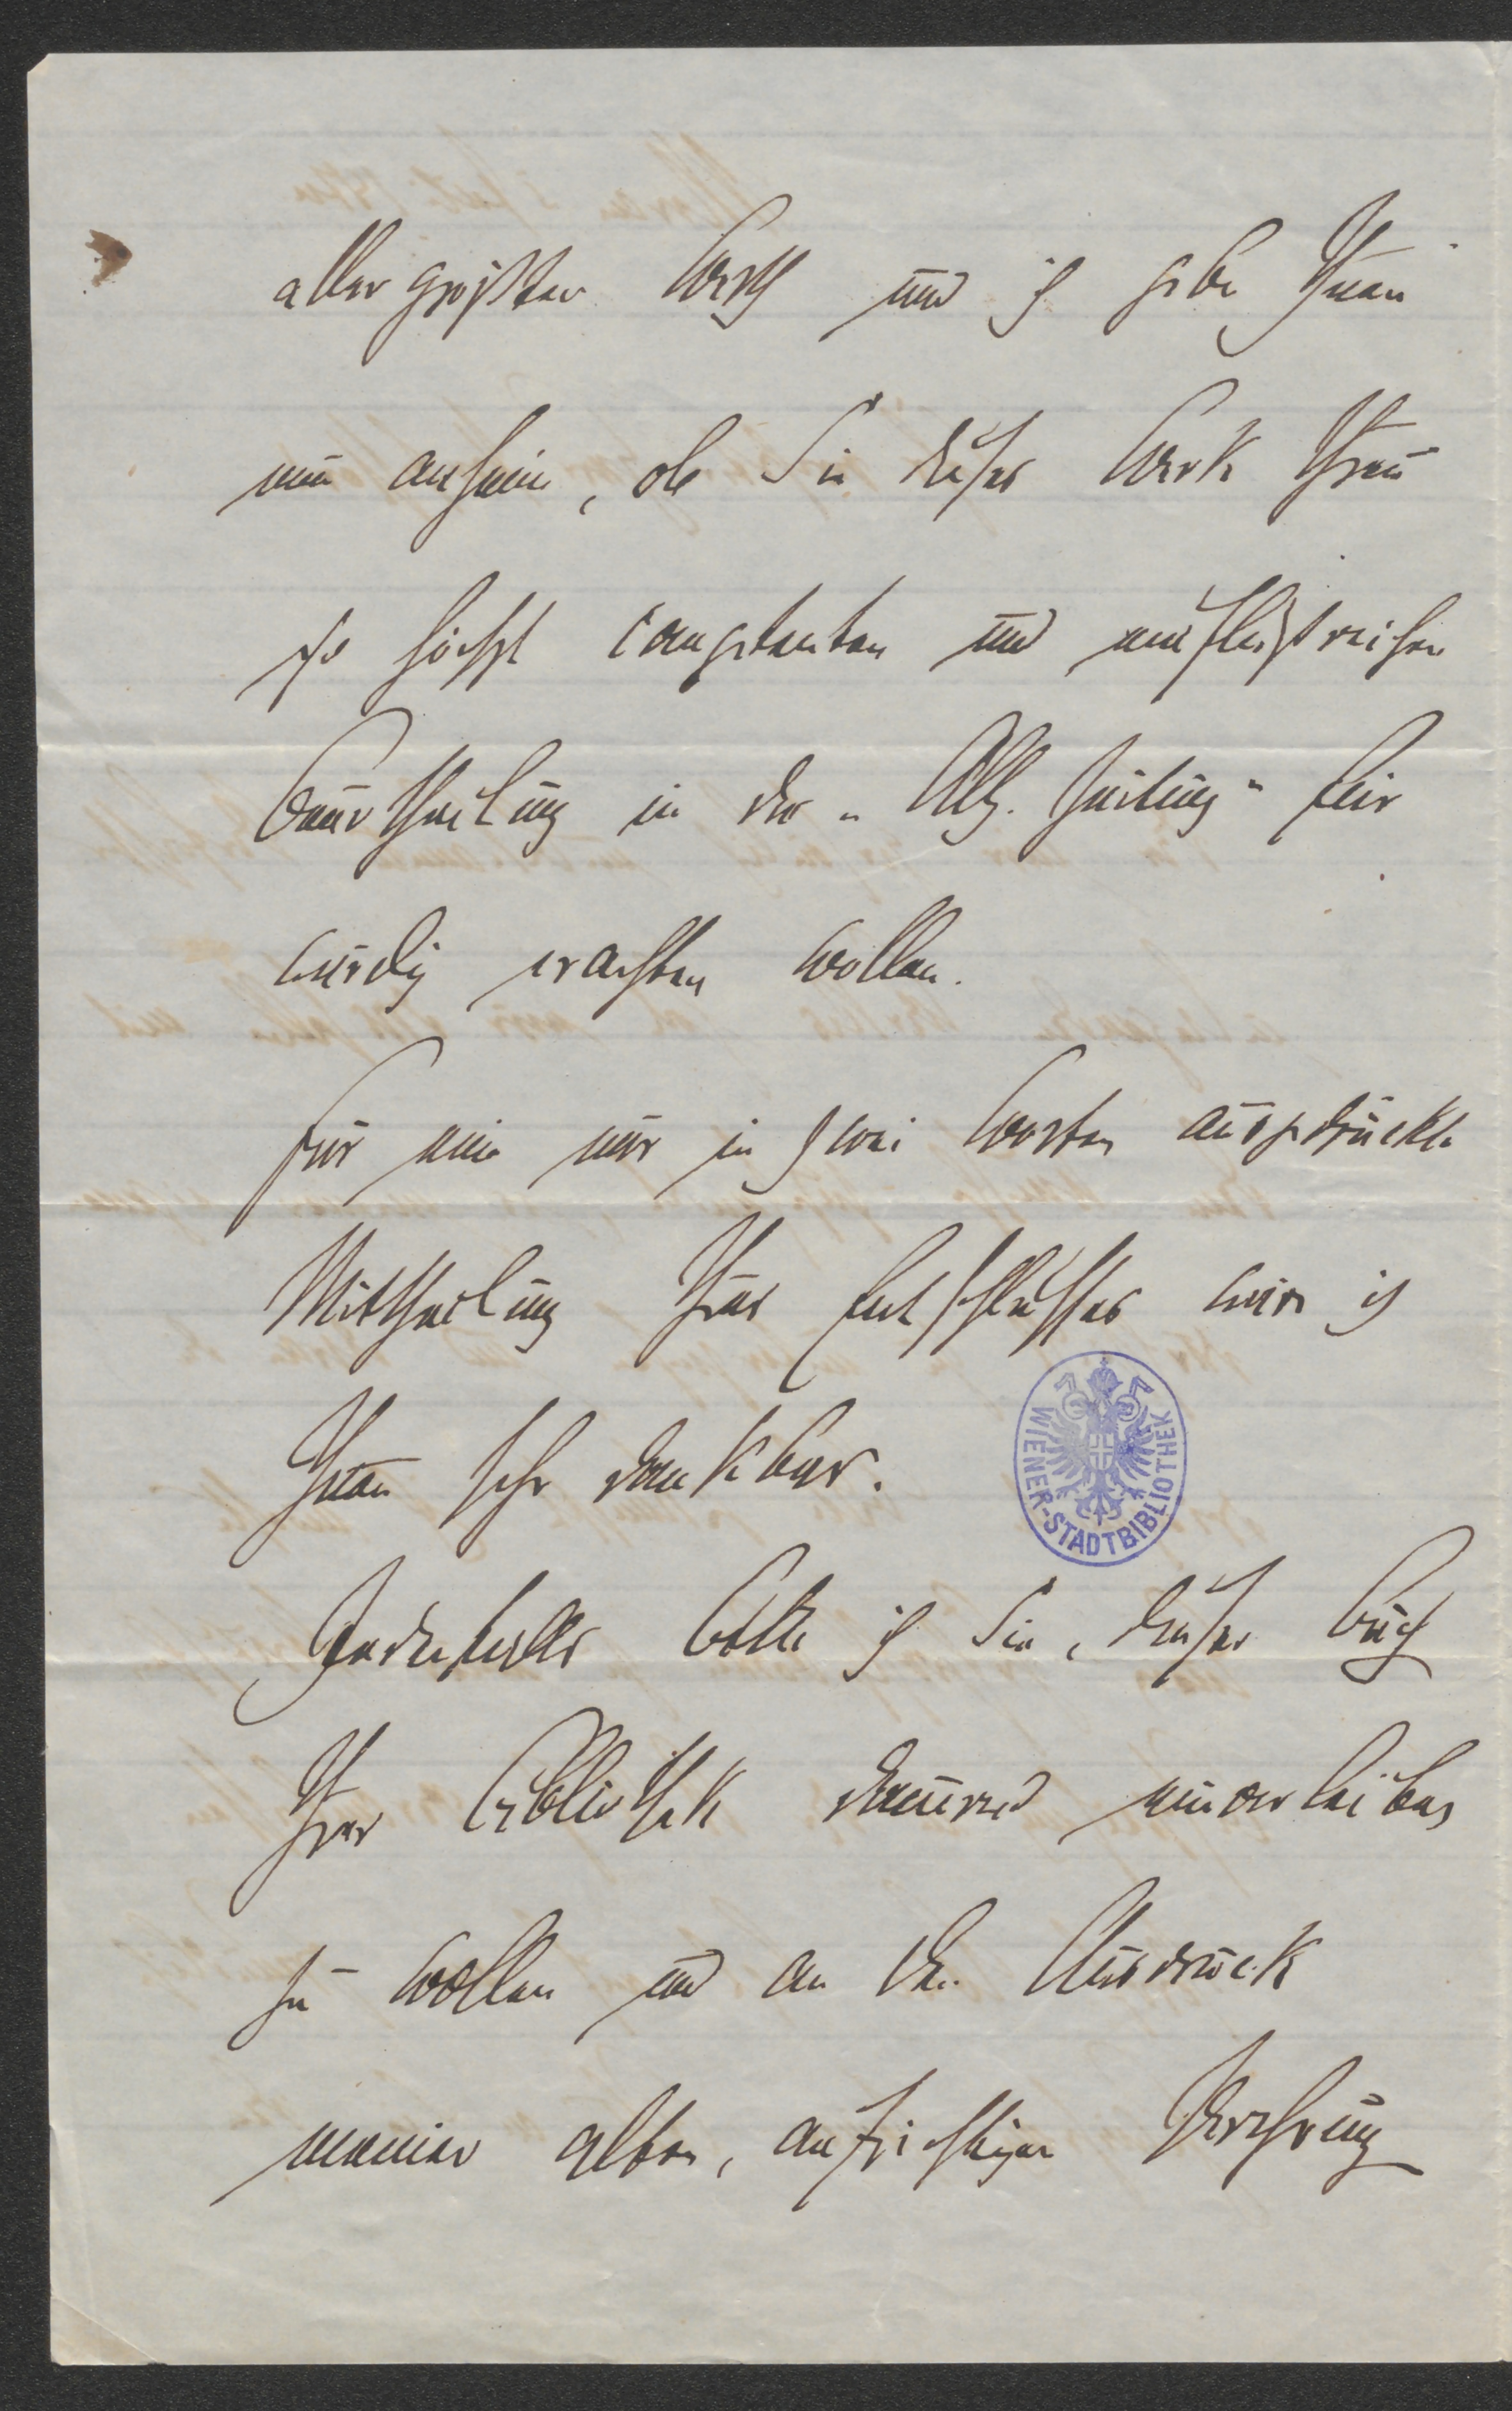 allergrößten Werth und ich gebe Ihnen
nun anheim, ob Sie dieses Werk Ihrer
so höchst competenten und einflußreichen
Beurtheilung in der „Allg. Zeitung" für
würdig erachten wollen.
Für eine nur in zwei Worten ausgedrückte
Mittheilung Ihres Entschlusses wäre ich
Ihnen sehr dankbar.
WIENER-STADTBIBLIOTHEK
Jedenfalls bitte ich Sie, dieses Buch
Ihrer Bibliothek dauernd einverleiben
zu wollen und an den Ausdruck
meiner alten, aufrichtigen Verehrung